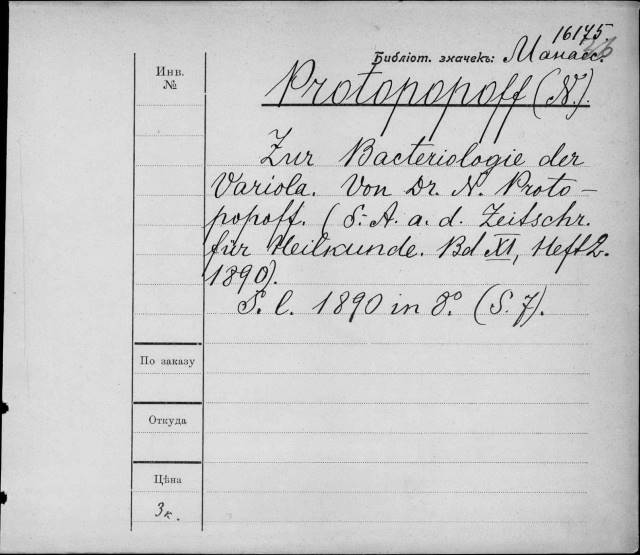 16175.
Инв.
№
Библіот. значекъ: Манасс.
Protopopoff (N.).
Zur Bacteriologie der
Variola. Von Dr. N. Proto-
popoff. (S.-A. a. d. Zeitschr.
für Heilkunde. Bd XI, Heft 2.
1890).
S. l. 1890 in 8.° (S. 7).
По заказу
Откуда
Цѣна
3 к.